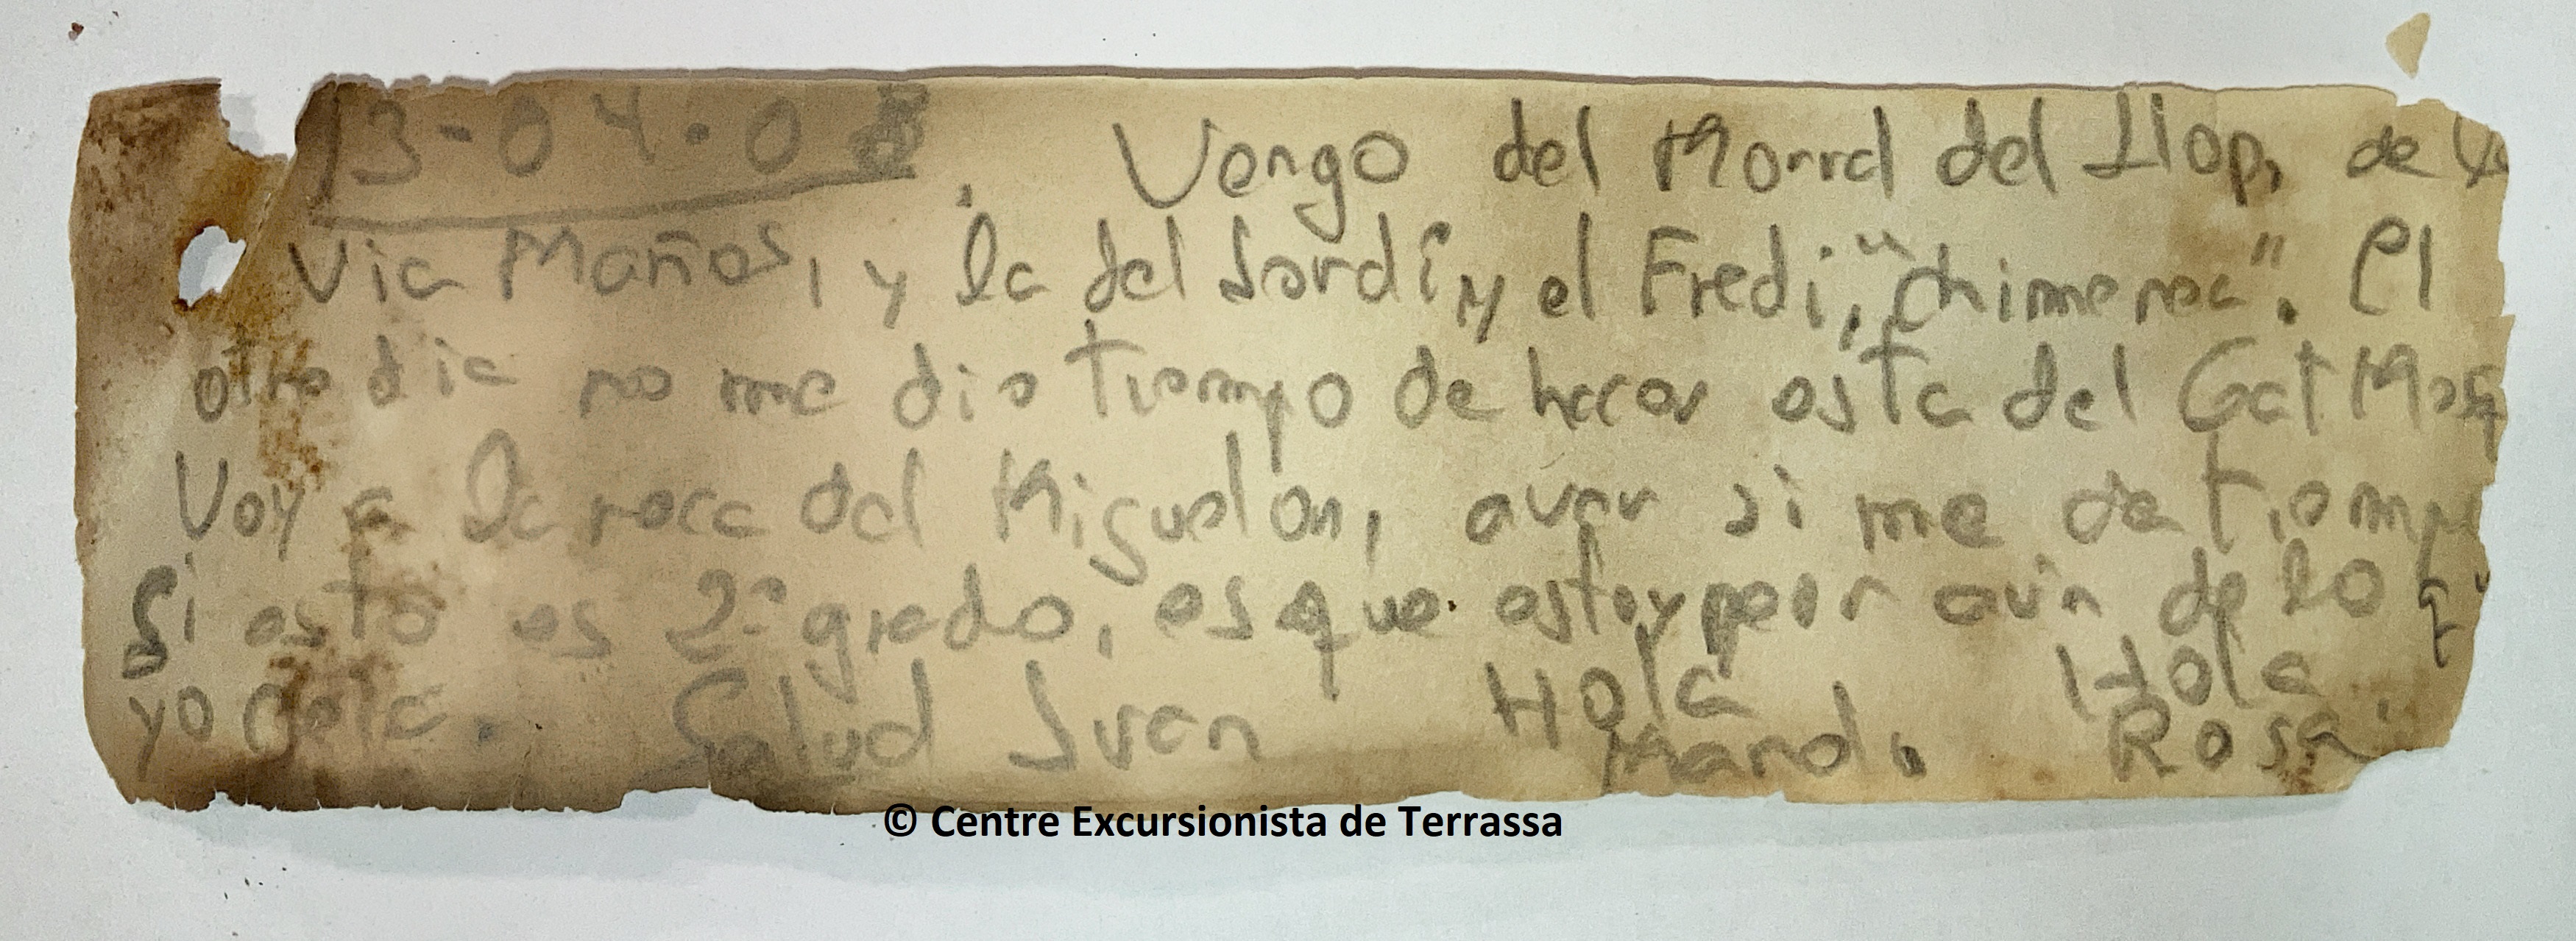 13-04-08. Vengo del Morral del Llop, de
Via Maños, y la del Jordi, y el Fredi, "chimenea". El
otro dia no me dio tiempo de hacer esta del Gat
Voy a la roca del Miguelon, aver si me da tiemp
Si esto es 2º grado, es que estoy peor aún de lo q
yo creia. Salud Juan Hola Hola
Mand. Rosa.
© Centre Excursionista de Terrassa